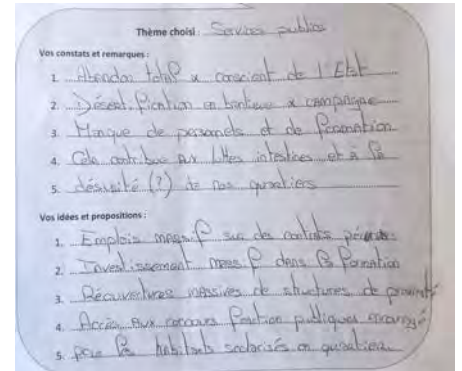 Thème choisi : Services publics
Vos constats et remarques :
1. Abandon total & conscient de l'Etat
2. Désertification en banlieue & campagne
3. Manque de personels et de formation
4. Cela contribue aux luttes intestines et à la
5. désunité (?) de nos quartiers
Vos idées et propositions :
1. Emplois massif sur des contrats
2. Investissement massif dans la formation
3. Réouvertures massives de structures de proximité
4. Accès aux concours fonction publiques
5. pour les habitants scolarisés en quartiers